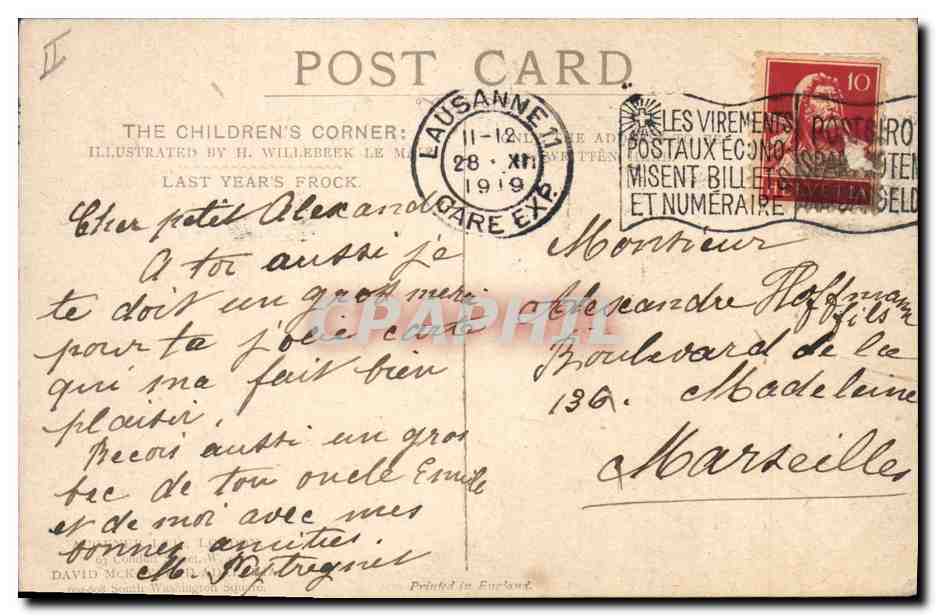 II
POST CARD
THE CHILDREN'S CORNER:
ILLUSTRATED BY H. WILLEBEEK LE
LAST YEAR'S FROCK.
LAUSANNE 11
11-12
28 · XII
1919
GARE EXP.
LES VIREMENTS
POSTAUX ÉCONO-
MISENT BILLETS
ET NUMÉRAIRE
POSTGIRO
10
Cher petit Alexandre
A toi aussi je
te doit un gros merci
pour ta jolie carte
qui ma fait bien
plaisir.
Recois aussi un gros
bec de ton oncle Emile
et de moi avec mes
bonnes amitiés.
M. Peytregnet
Monsieur
Alexandre Hoffmann
fils
Boulevard de la
136. Madeleine
Marseilles
CPAPHIL
DAVID McK
South Washington Square.
Printed in England.